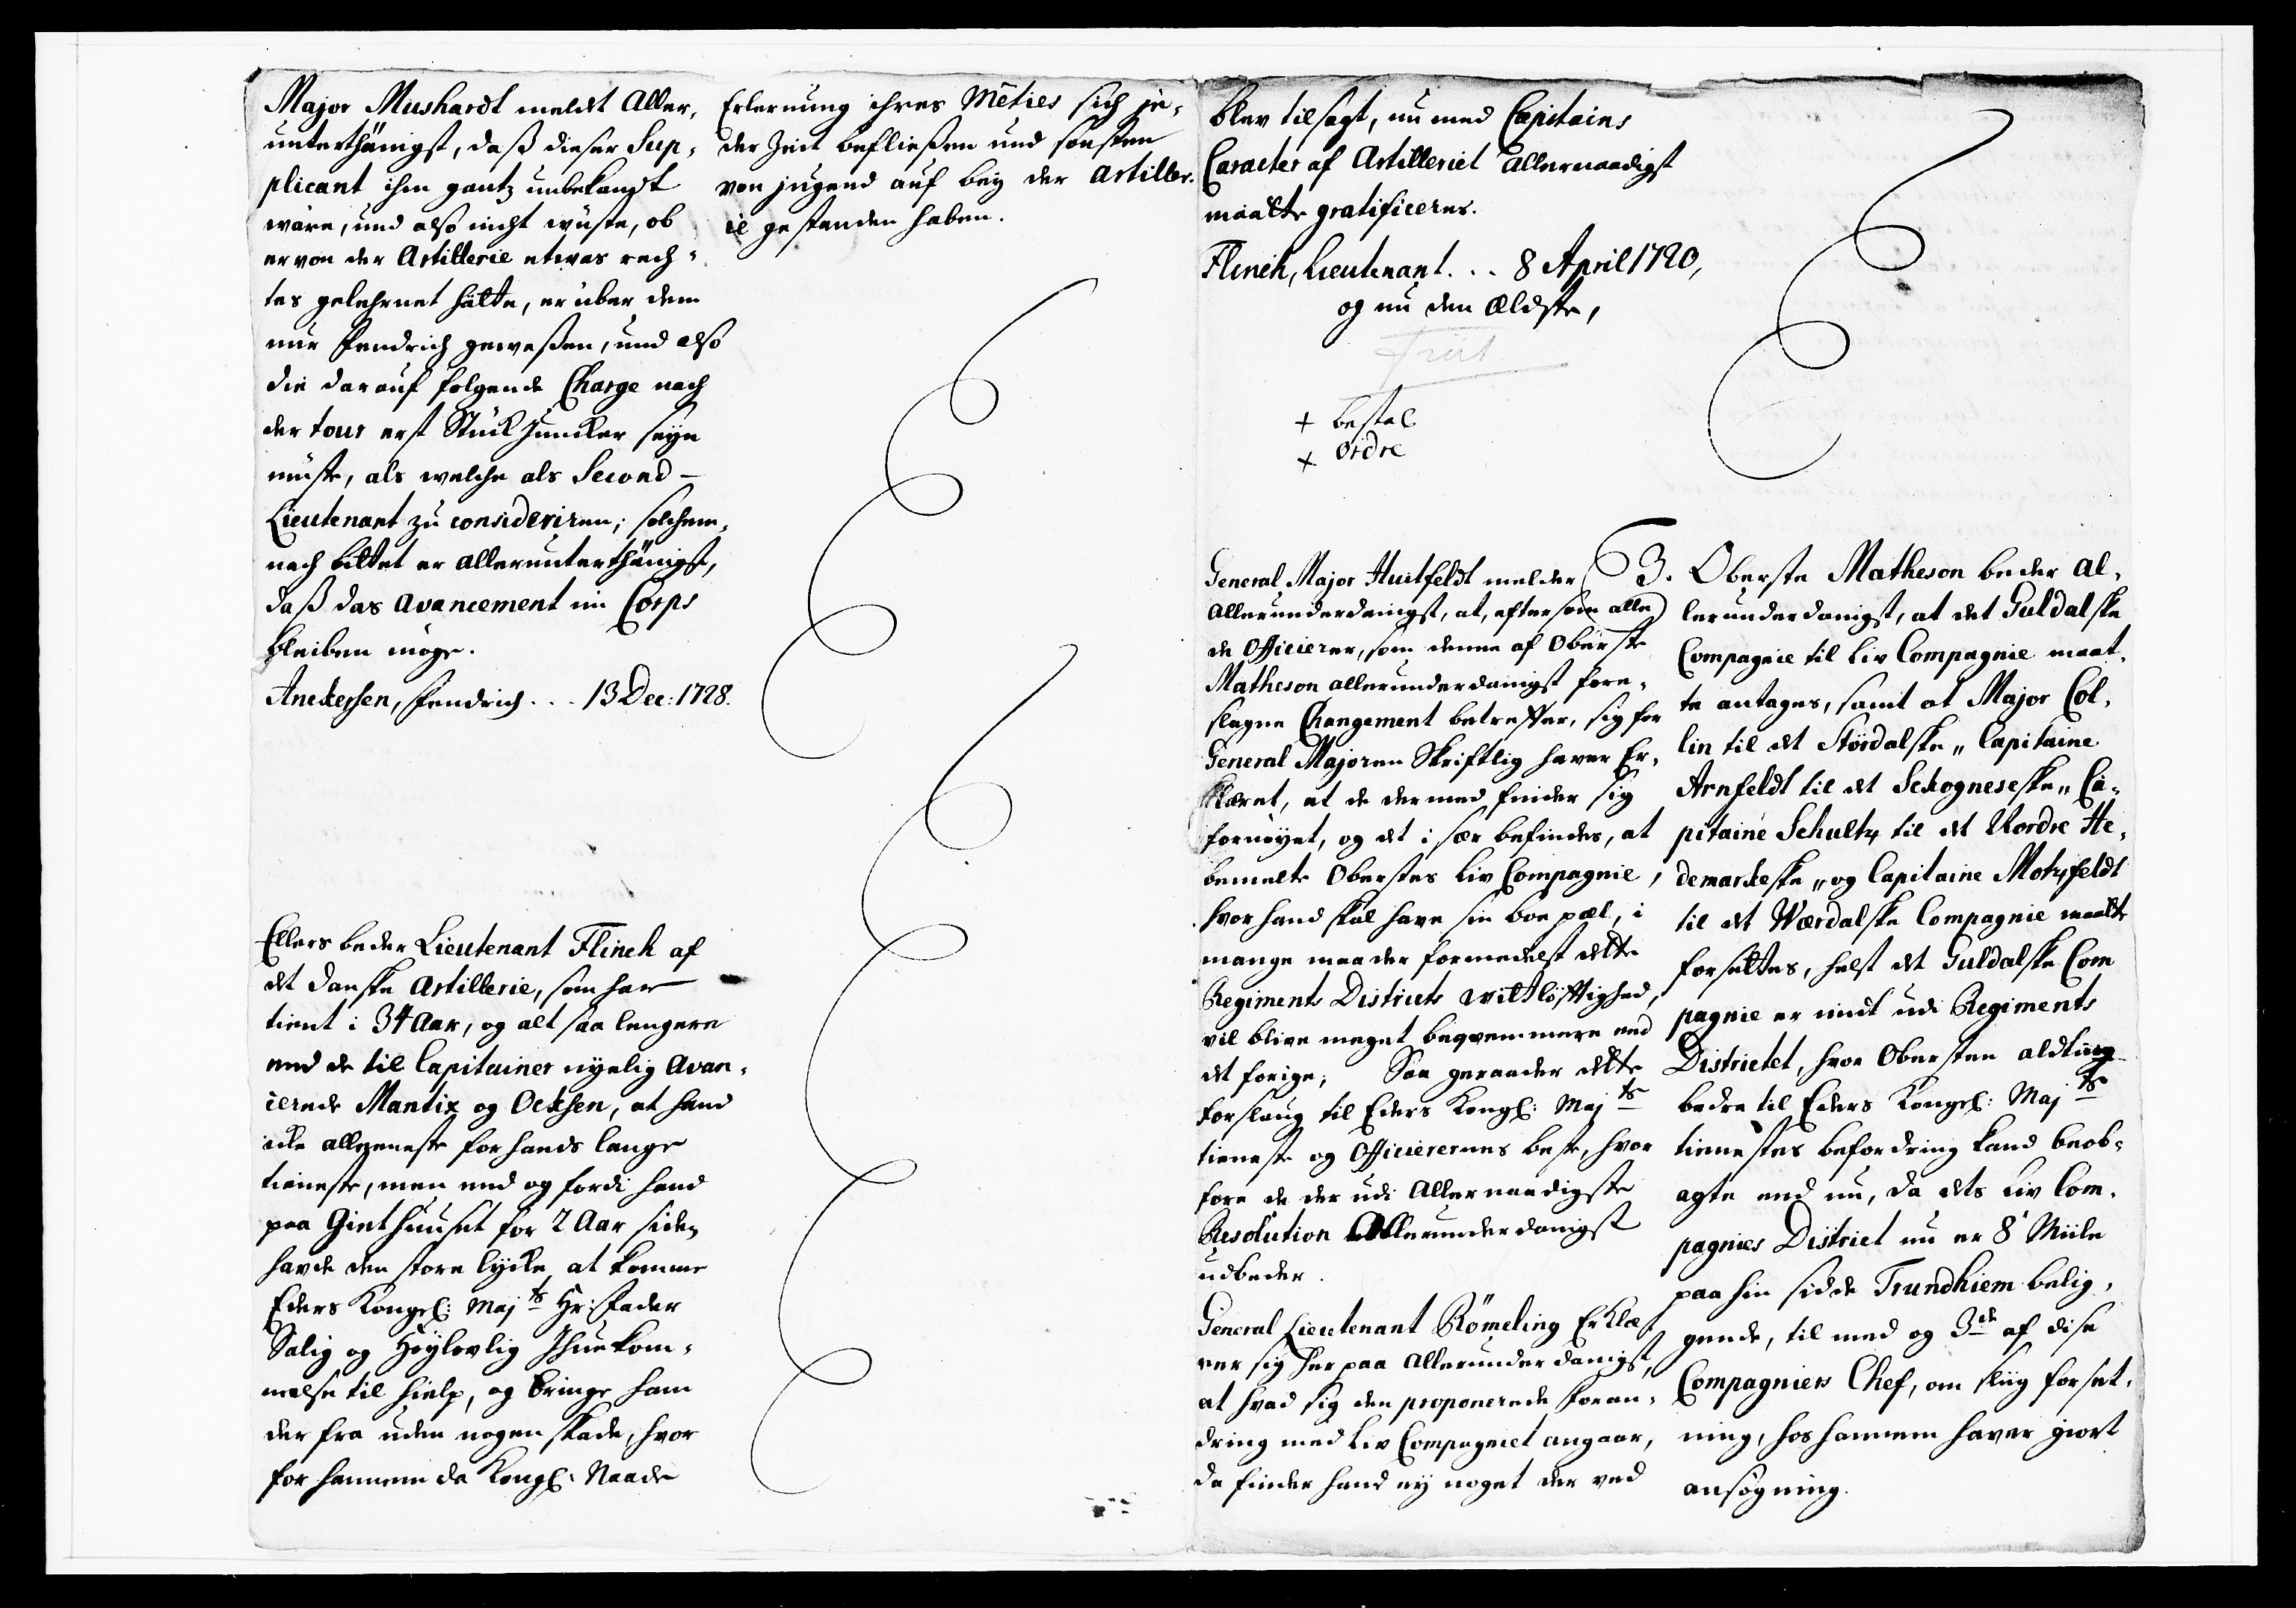 Major Mushardt meldet Aller,
unterthänigst, daß dieser Sup,
plicant ihm gantz unbekandt
wäre, und also nicht wüste, ob
er von der Artillerie etwas rech,
tes gelehrnet hätte, er über dem
nur Fendrich geweßen, und also
die darauf folgende Charge nach
der tour erst Stück Juncker seyn
müste, als welche als Second-
Lieutenant zu consideriren; solchem,
nach bittet er allerunterthänigst,
daß das Avancement im Corps
bleiben möge.
Aneckersen, Fendrich... 13 Dec: 1728.
Ellers beder Lieutenant Flinch af
det danske Artillerie, som har
tient i 34 Aar, og alt saa lengere
end de til Capitainer nyelig Avan,
cerede Mantix og Ocksen, at hand
icke alleeneste for hands lange
tieneste, men end og fordi hand
paa Giethuuset for 2 Aar siden
havde den store lycke, at komme
Eders Kongel: Majts Hr: Fader
Salig og Høylovlig Ihukom,
melse til hielp, og bringe ham
der fra uden nogen skade, hvor
for hannem da Kongl: Naade
Erlernung ihres Mêties sich je,
der Zeit befließen und sonsten
von jugend auf bey der Artiller,
ie gestanden haben.
blev tilsagt, nu med Capitains
Caracter af Artilleriet allernaadigst
maatte gratificeres.
Flinch, Lieutenant... 8 April 1720,
og nu den Eldste,
+ bestal
+ Ordre
General Major Huitfeldt melder
Allerunderdanigst, at, eftersom alle
de Officierer, som denne af Oberste
Matheson allerunderdanigst fore,
slagne Changement betreffer, sig for
General Majoren Skriftlig haver Er,
klæret, at de dermed finder sig
fornøyet, og det i sær befindes, at
bemelte Oberstes Liv Compagnie,
hvor hand skal have sin boe pæl, i
mange maader formedelst dette
Regiments Districts vitløfftighed,
vil blive meget beqvemmere end
det forige; Saa geraader dette
forslaug til Eders Kongl: Majts
tieneste og Officierernes beste, hvor
fore de der udi Allernaadigste
Resolution Allerunderdanigst
udbeder.
General Lieutenant Römeling Erklæ,
rer sig her paa Allerunderdanigst,
at hvad sig den proponerede foran,
dring med Liv Compagniet angaar,
da finder hand ey noget der ved
3. Oberste Matheson beder al,
lerunderdanigst, at det Guldalske
Compagnie til Liv Compagnie maat,
te antages, samt at Major Col,
lin til det Størdalske, Capitaine
Arnfeldt til det Sckogneseske, Ca,
pitaine Schultz til det Nordre He,
demarckeske, og Capitaine Motzfeldt
til det Værdalske Compagnie maatte
forsættes, helst det Guldalske Com
pagnie er midt udi Regiments
Districtet, hvor Obersten aldting
bedre til Eders Kongel: Majts
tienestes befordring kand beob,
agte end nu, da dets Liv Com,
pagnies District nu er 8 Miile
paa hin side Trundhiem belig,
gende, til med og 3de af disse
Compagniers Chef, om sliig forsæt,
ning, hos hannem haver giort
ansøgning.